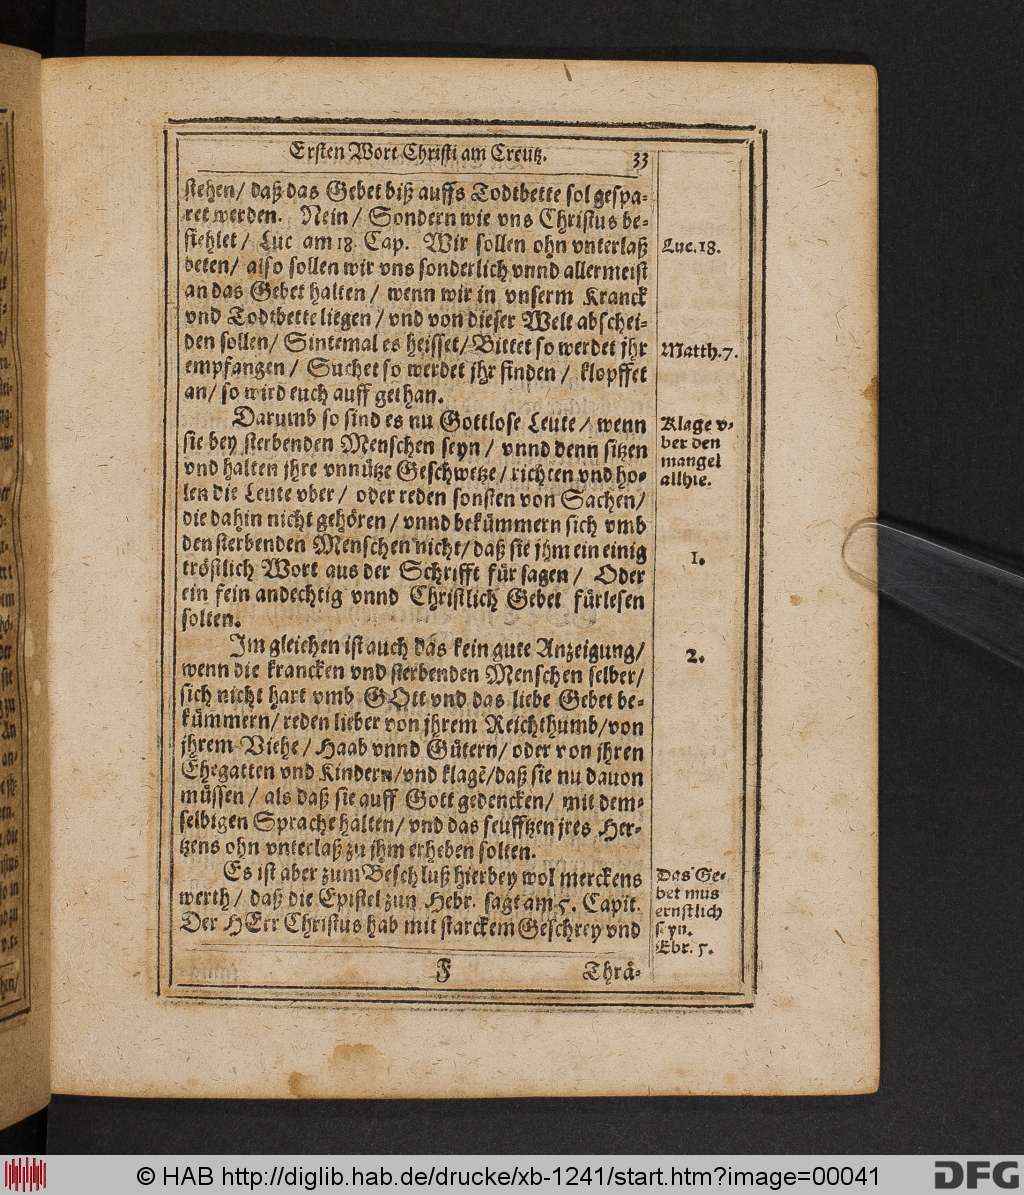 Ersten Wort Christi am Creutz. 33
stehen/ daß das Gebet biß auffs Todtbette sol gespa-
ret werden. Nein/ Sondern wie vns Christus be-
fiehlet/ Luc am 18. Cap. Wir sollen ohn vnterlaß
beten/ also sollen wir vns sonderlich vnnd allermeist
an das Gebet halten/ wenn wir in vnserm Kranck
vnd Todtbette liegen/ vnd von dieser Welt abschei-
den sollen/ Sintemal es heisset/ Bittet so werdet jhr
empfangen/ Suchet so werdet jhr finden/ klopffet
an/ so wird euch auff gethan.
Luc. 18.
Matth. 7.
Darumb so sind es nu Gottlose Leute/ wenn
sie bey sterbenden Menschen seyn/ vnnd denn sitzen
vnd halten jhre vnnütze Geschwetze/ richten vnd ho-
len die Leute vber/ oder reden sonsten von Sachen/
die dahin nicht gehören/ vnnd bekümmern sich vmb
den sterbenden Menschen nicht/ daß sie jhm ein einig
tröstlich Wort aus der Schrifft für sagen/ Oder
ein fein andechtig vnnd Christlich Gebet fürlesen
solten.
Klage v-
ber den
mangel
allhie.
1.
Im gleichen ist auch das kein gute Anzeigung/
wenn die krancken vnd sterbenden Menschen selber/
sich nicht hart vmb GOtt vnd das liebe Gebet be-
kümmern/ reden lieber von jhrem Reichthumb/ von
jhrem Viehe/ Haab vnnd Gütern/ oder von jhren
Ehegatten vnd Kindern/ vnd klagẽ/ daß sie nu dauon
müssen/ als daß sie auff Gott gedencken/ mit dem-
selbigen Sprache halten/ vnd das seufftzen jres Her-
tzens ohn vnterlaß zu jhm erheben solten.
2.
Es ist aber zum Beschluß hierbey wol merckens
werth/ daß die Epistel zun Hebr. sagt am 5. Capit.
Der HErr Christus hab mit starckem Geschrey vnd
Das Ge-
bet mus
ernstlich
seyn.
Ebr. 5.
F Thrä-
© HAB http://diglib.hab.de/drucke/xb-1241/start.htm?image=00041
DFG